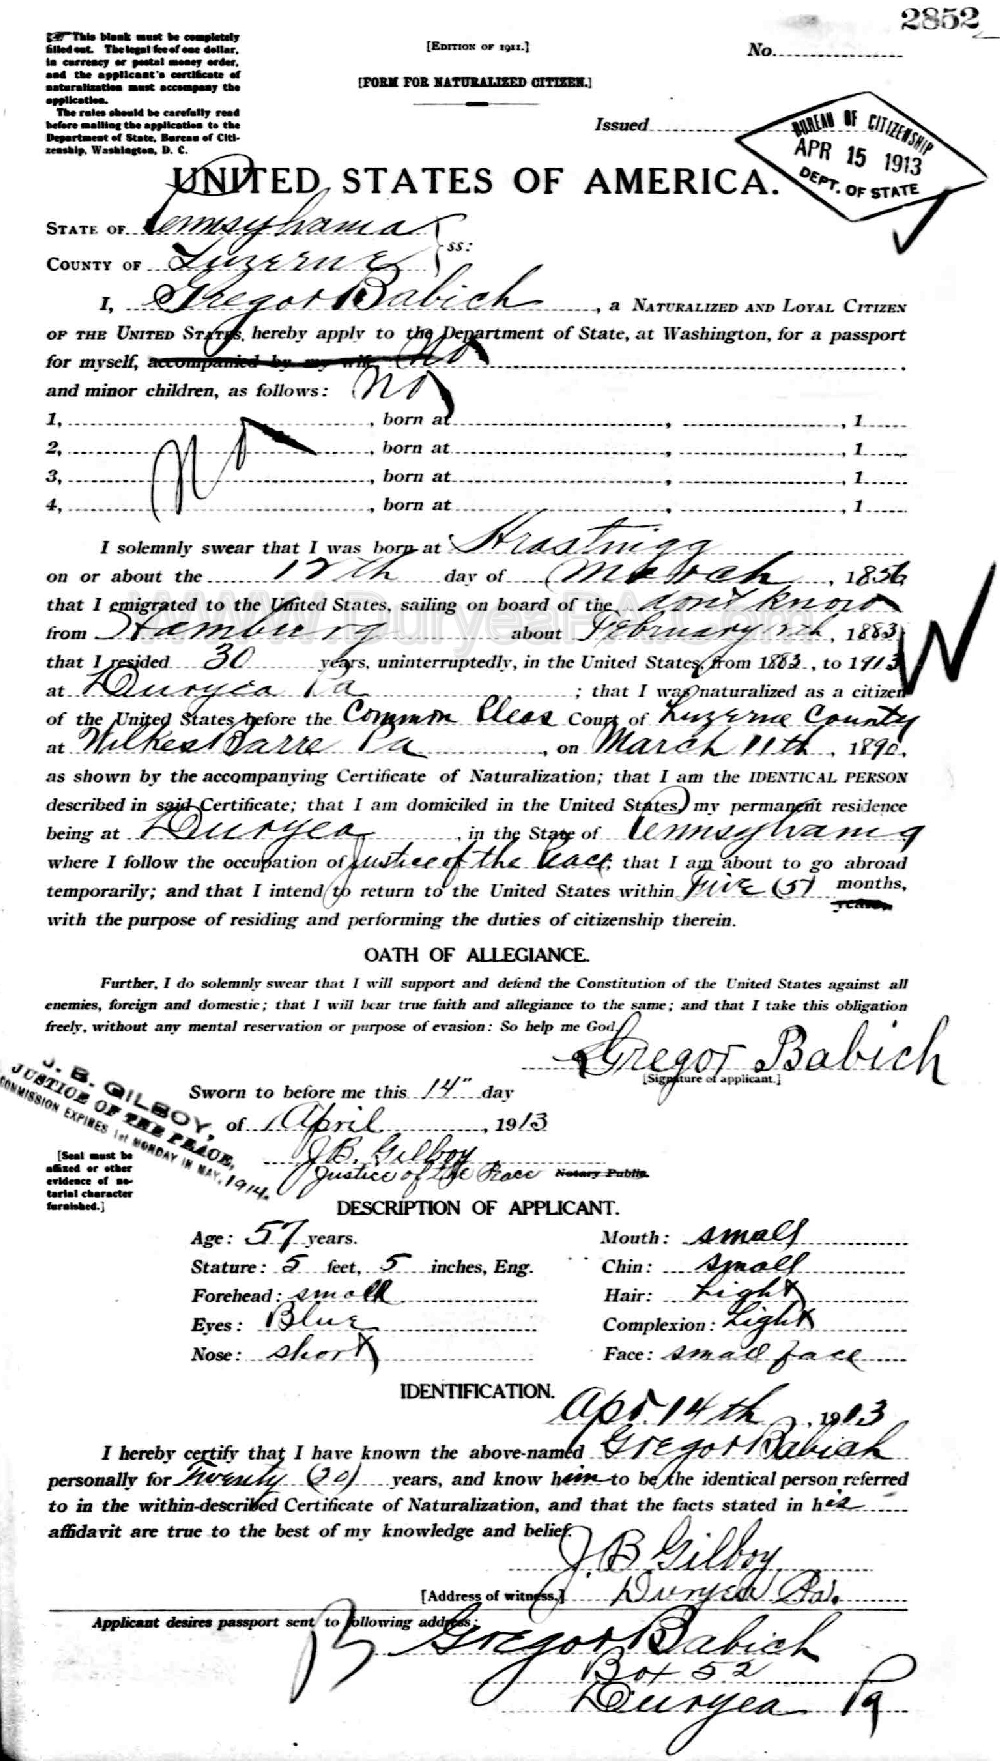 2852
☞ This blank must be completely
filled out. The legal fee of one dollar,
in currency or postal money order,
and the applicant's certificate of
naturalization must accompany the
application.
The rules should be carefully read
before mailing the application to the
Department of State, Bureau of Citi-
zenship, Washington, D. C.
[EDITION OF 1911.]
[FORM FOR NATURALIZED CITIZEN.]
No.
Issued
BUREAU OF CITIZENSHIP
APR 15 1913
DEPT. OF STATE
UNITED STATES OF AMERICA.
STATE OF Pennsylvania
COUNTY OF Luzerne
ss:
I, Gregor Babich, a NATURALIZED AND LOYAL CITIZEN
OF THE UNITED STATES, hereby apply to the Department of State, at Washington, for a passport
for myself, accompanied by my wife, No
and minor children, as follows: No
1, , born at , , 1
2, , born at , , 1
No
3, , born at , , 1
4, , born at , , 1
I solemnly swear that I was born at Hrastnigg
on or about the 12th day of March, 1856
that I emigrated to the United States, sailing on board of the don't know
from Hamburg about February , 1883
that I resided 30 years, uninterruptedly, in the United States, from 1883, to 1913
at Duryea Pa ; that I was naturalized as a citizen
of the United States before the Common Pleas Court of Luzerne County
at Wilkes Barre Pa, on March 11th, 1890,
as shown by the accompanying Certificate of Naturalization; that I am the IDENTICAL PERSON
described in said Certificate; that I am domiciled in the United States, my permanent residence
being at Duryea, in the State of Pennsylvania
where I follow the occupation of Justice of the Peace; that I am about to go abroad
temporarily; and that I intend to return to the United States within Five (5) months,
years,
with the purpose of residing and performing the duties of citizenship therein.
WWW.DuryeaPA.Com
OATH OF ALLEGIANCE.
Further, I do solemnly swear that I will support and defend the Constitution of the United States against all
enemies, foreign and domestic; that I will bear true faith and allegiance to the same; and that I take this obligation
freely, without any mental reservation or purpose of evasion: So help me God.
Gregor Babich
[Signature of applicant.]
J. B. GILBOY,
JUSTICE OF THE PEACE,
COMMISSION EXPIRES 1st MONDAY IN MAY, 1914.
Sworn to before me this 14" day
of April, 1913
J.B. Gilboy
Justice of the Peace Notary Public.
[Seal must be
affixed or other
evidence of no-
tarial character
furnished.]
DESCRIPTION OF APPLICANT.
Age: 57 years.
Mouth: small
Stature: 5 feet, 5 inches, Eng.
Chin: small
Forehead: small
Hair: Light
Eyes: Blue
Complexion: Light
Nose: short
Face: small face
IDENTIFICATION.
Apr. 14th, 1913
I hereby certify that I have known the above-named Gregor Babich
personally for Twenty (20) years, and know him to be the identical person referred
to in the within-described Certificate of Naturalization, and that the facts stated in his
affidavit are true to the best of my knowledge and belief.
J B Gilboy
[Address of witness.] Duryea Pa.
Applicant desires passport sent to following address:
Gregor Babich
Box 52
Duryea Pa